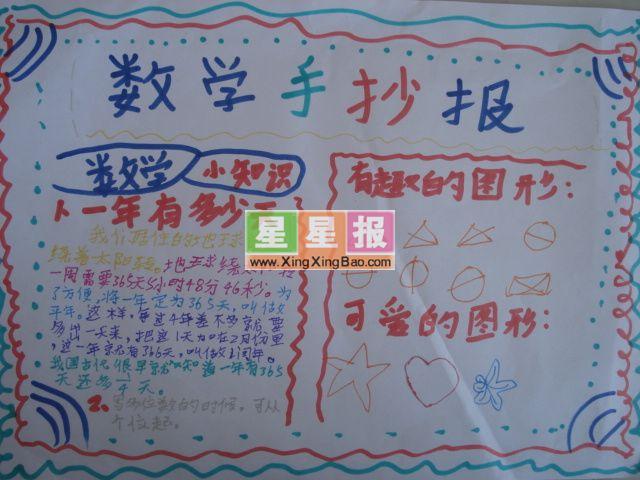 数学手抄报
数学 小知识
1、一年有多少天?
我们居住的地球
绕着太阳转。地球绕太阳转
一周需要365天5小时48分46秒。为
了方便,将一年定为365天,叫做
平年。这样,每过4年差不多就要
多出一天来,把这1天加在2月份里,
这一年就有366天,叫做闰年。
我国古代很早就知道一年有365
天还多1/4天
2、写多位数的时候,可从
个位起。
有趣的图形:
可爱的图形:
星星报
www.XingXingBao.com